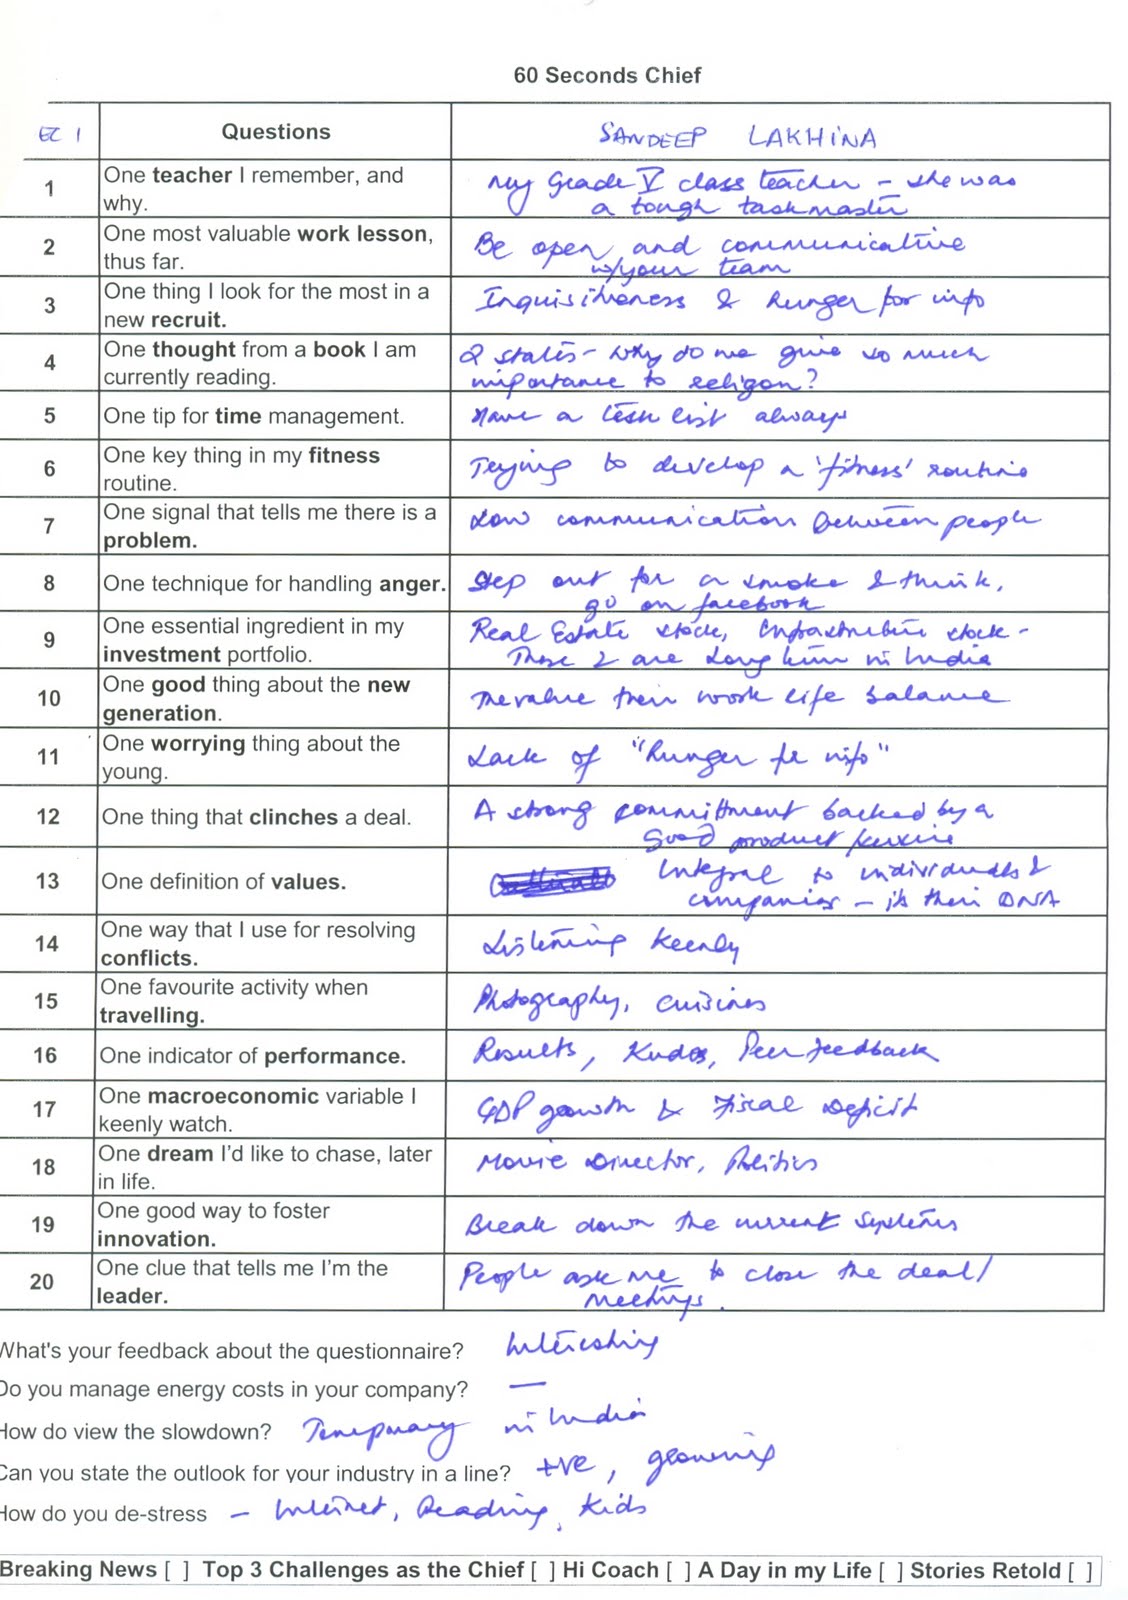 60 Seconds Chief
EC 1 Questions SANDEEP LAKHINA
1 One teacher I remember, and why. My Grade V class teacher - she was
a tough taskmaster
2 One most valuable work lesson, thus far. Be open and communicative
w/your team
3 One thing I look for the most in a new recruit. Inquisitiveness & hunger for info
4 One thought from a book I am currently reading. 2 states - why do we give so much
importance to religon?
5 One tip for time management. Have a task list always
6 One key thing in my fitness routine. Trying to develop a 'fitness' routine
7 One signal that tells me there is a problem. Low communication between people
8 One technique for handling anger. Step out for a smoke & think,
go on facebook
9 One essential ingredient in my investment portfolio. Real Estate stock, Infrastructure stock -
These 2 are long term in India
10 One good thing about the new generation. The value their work life balance
11 One worrying thing about the young. Lack of "hunger for info"
12 One thing that clinches a deal. A strong committment backed by a
good product/service
13 One definition of values. Integral to individuals &
companies - it's their DNA
14 One way that I use for resolving conflicts. Listening keenly
15 One favourite activity when travelling. Photography, cuisines
16 One indicator of performance. Results, Kudos, Peer feedback
17 One macroeconomic variable I keenly watch. GDP growth & Fiscal Deficit
18 One dream I'd like to chase, later in life. Movie Director, Politics
19 One good way to foster innovation. Break down the current systems
20 One clue that tells me I'm the leader. People ask me to close the deal/
meetings.
What's your feedback about the questionnaire? Interesting
Do you manage energy costs in your company? —
How do view the slowdown? Temporary in India
Can you state the outlook for your industry in a line? +ve, growing
How do you de-stress - Internet, Reading, Kids
Breaking News [ ] Top 3 Challenges as the Chief [ ] Hi Coach [ ] A Day in my Life [ ] Stories Retold [ ]